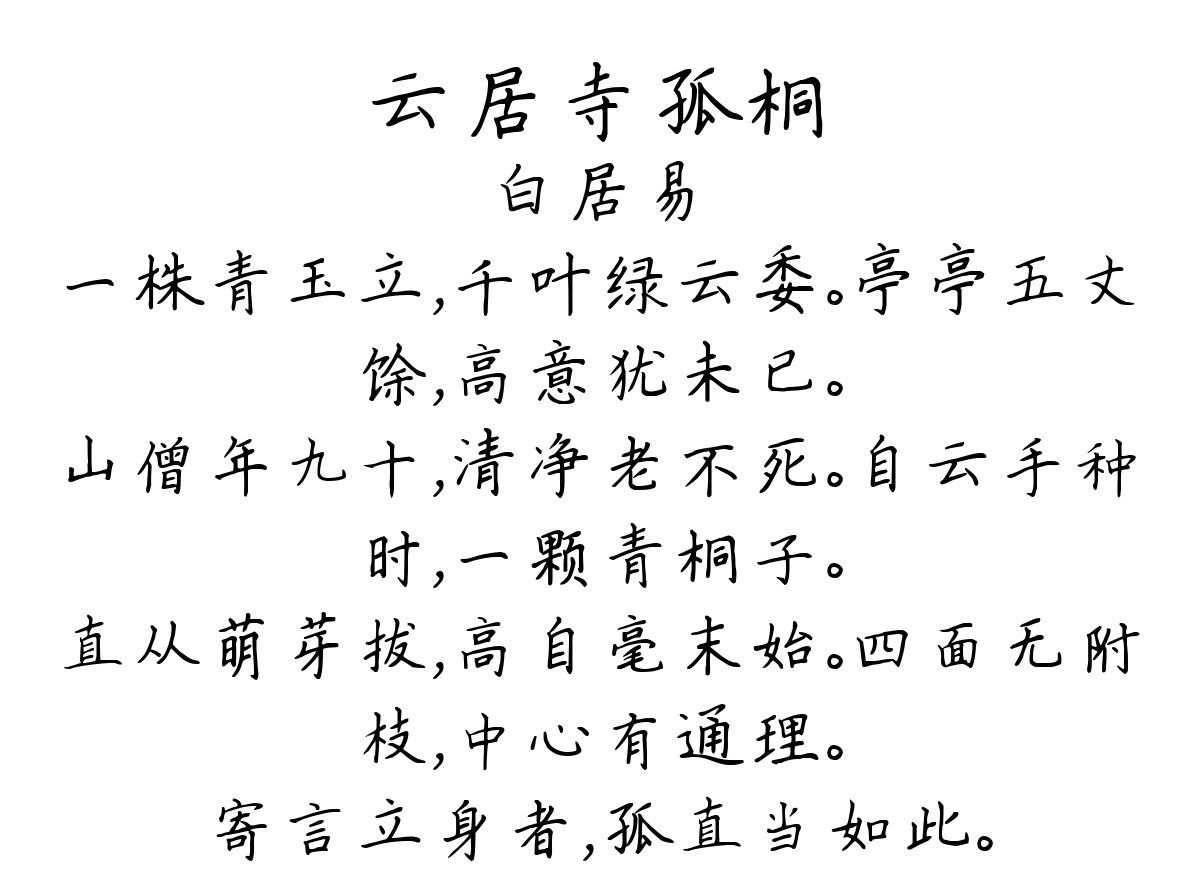 云居寺孤桐
白居易
一株青玉立,千叶绿云委。亭亭五丈
馀,高意犹未已。
山僧年九十,清净老不死。自云手种
时,一颗青桐子。
直从萌芽拔,高自毫末始。四面无附
枝,中心有通理。
寄言立身者,孤直当如此。